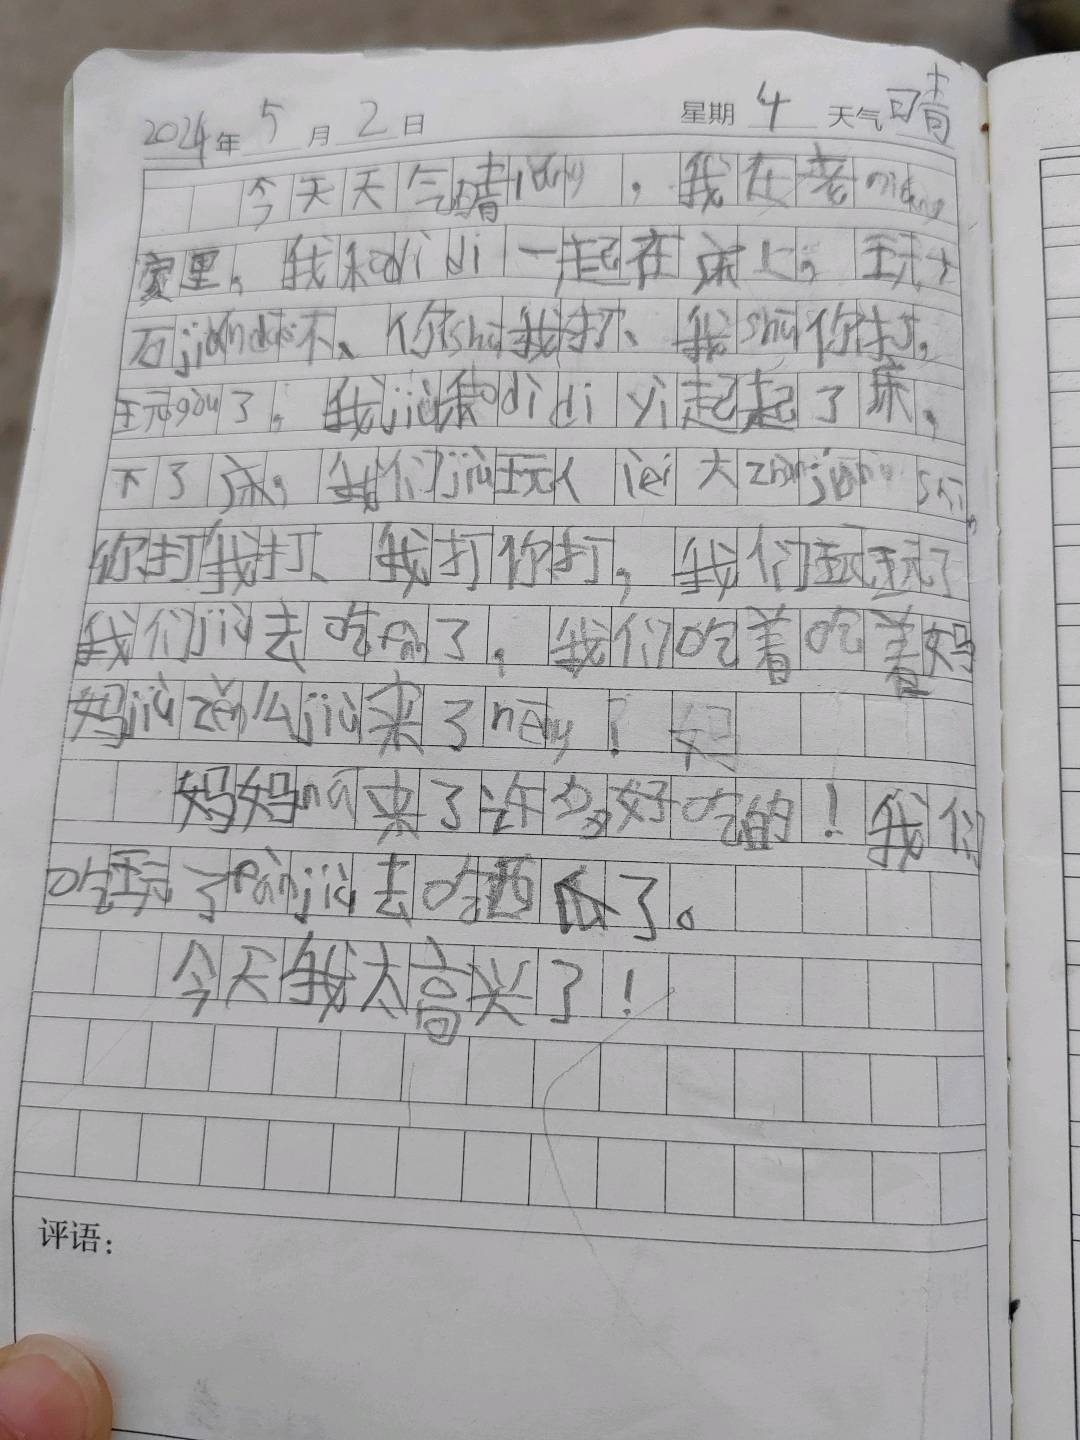 2024年5月2日 星期4 天气晴
今天天气晴lǎng，我在老niáng
家里，我和dì di一起在床上，玩
石jiǎn dāo不、你shū我打、我shū你打，
玩gòu了，我jiù和dì di yì起起了床，
下了床，我们jiù玩人 lèi 大 zhàn jiāng shī，
你打我打、我打你打，我们玩玩了
我们jiù去吃fàn了，我们吃着吃着妈
妈jiù zěn么jiù来了nēng？妈
妈妈ná来了许多好吃的！我们
吃玩了fàn jiù去吃西瓜了。
今天我太高兴了！
评语：